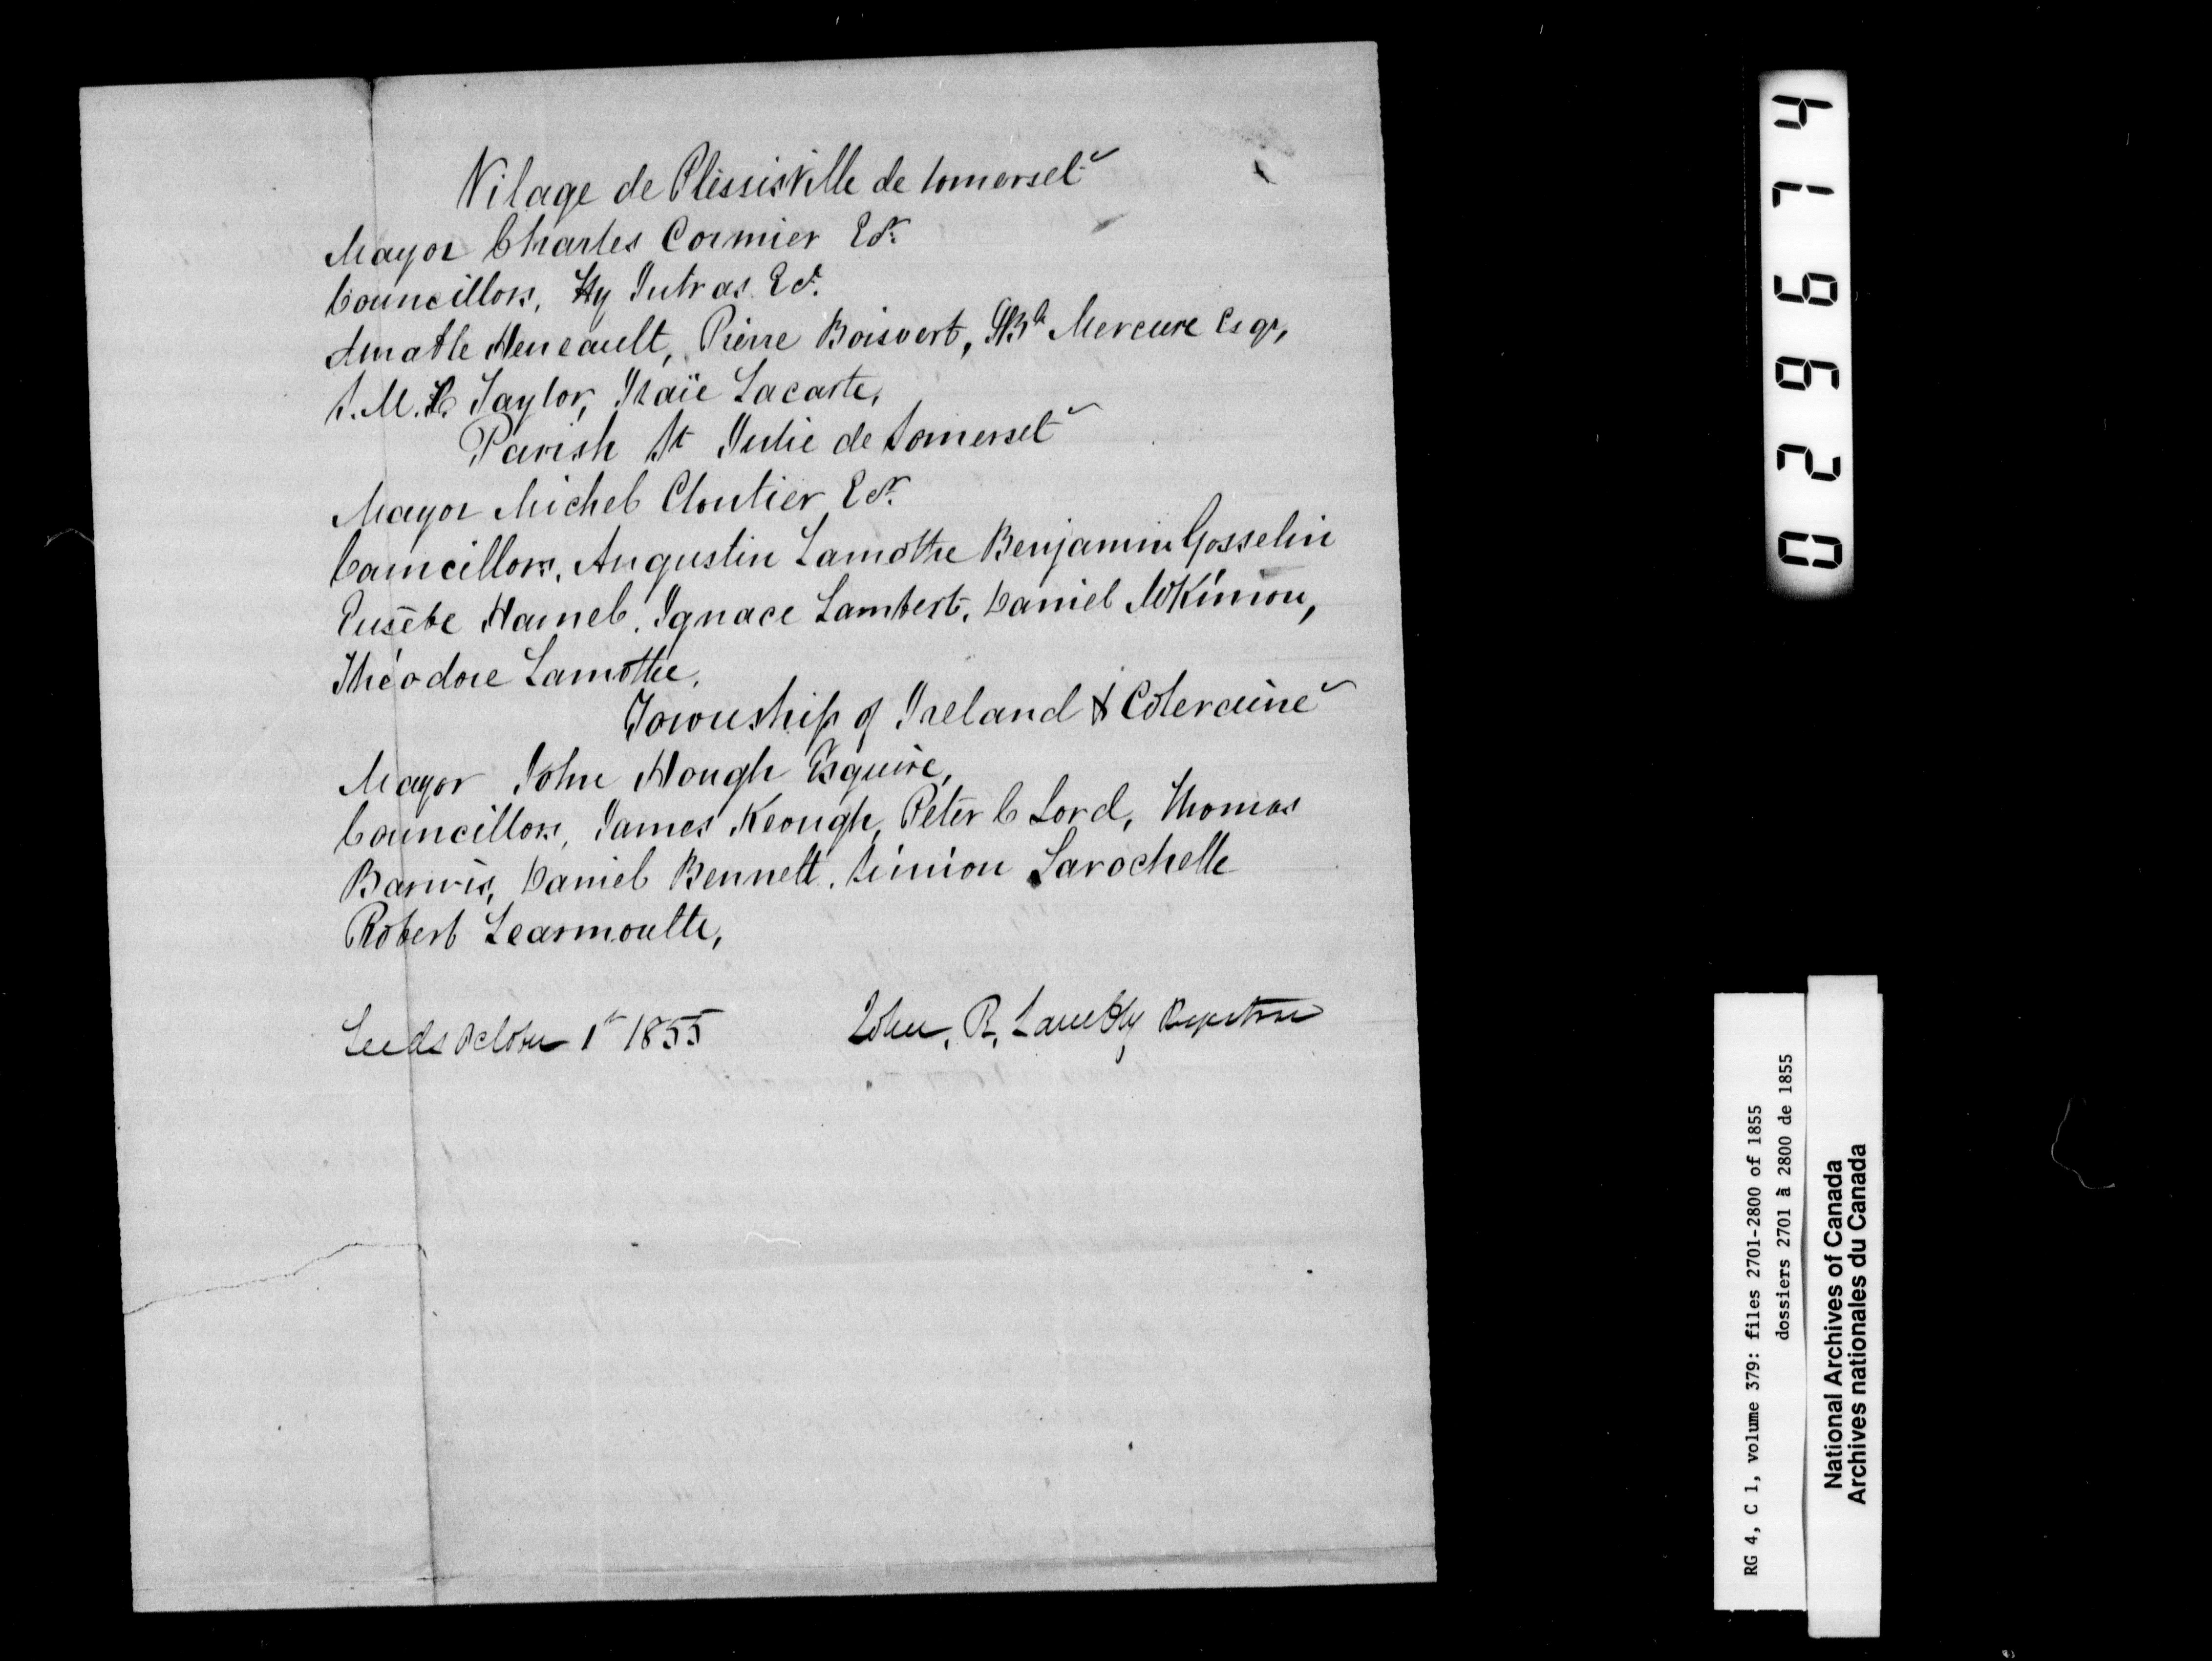 Vilage de Plessisville de Somerset
Mayor Charles Cormier Er.
Councillors, Hy Jutras Er.
Amable Heneault, Pierre Boisvert, JBte Mercure Esqr,
S. M. Taylor, Isaïe Lacaste,
Parish St Julie de Somerset
Mayor Michel Cloutier Er.
Councillors, Augustin Lamothe Benjamin Gosselin
Eusèbe Hamel, Ignace Lambert, Daniel McKinion,
Théodore Lamothe,
Township of Ireland & Coleraine
Mayor John Hough Esquire,
Councillors, James Keough, Peter C Lord, Thomas
Barwis, Daniel Bennett, Simion Larochelle
Robert Learmoulth,
Leeds October 1st 1855 John, R, Lambly Registrar
026614
RG 4, C 1, volume 379: files 2701-2800 of 1855
dossiers 2701 à 2800 de 1855
National Archives of Canada
Archives nationales du Canada